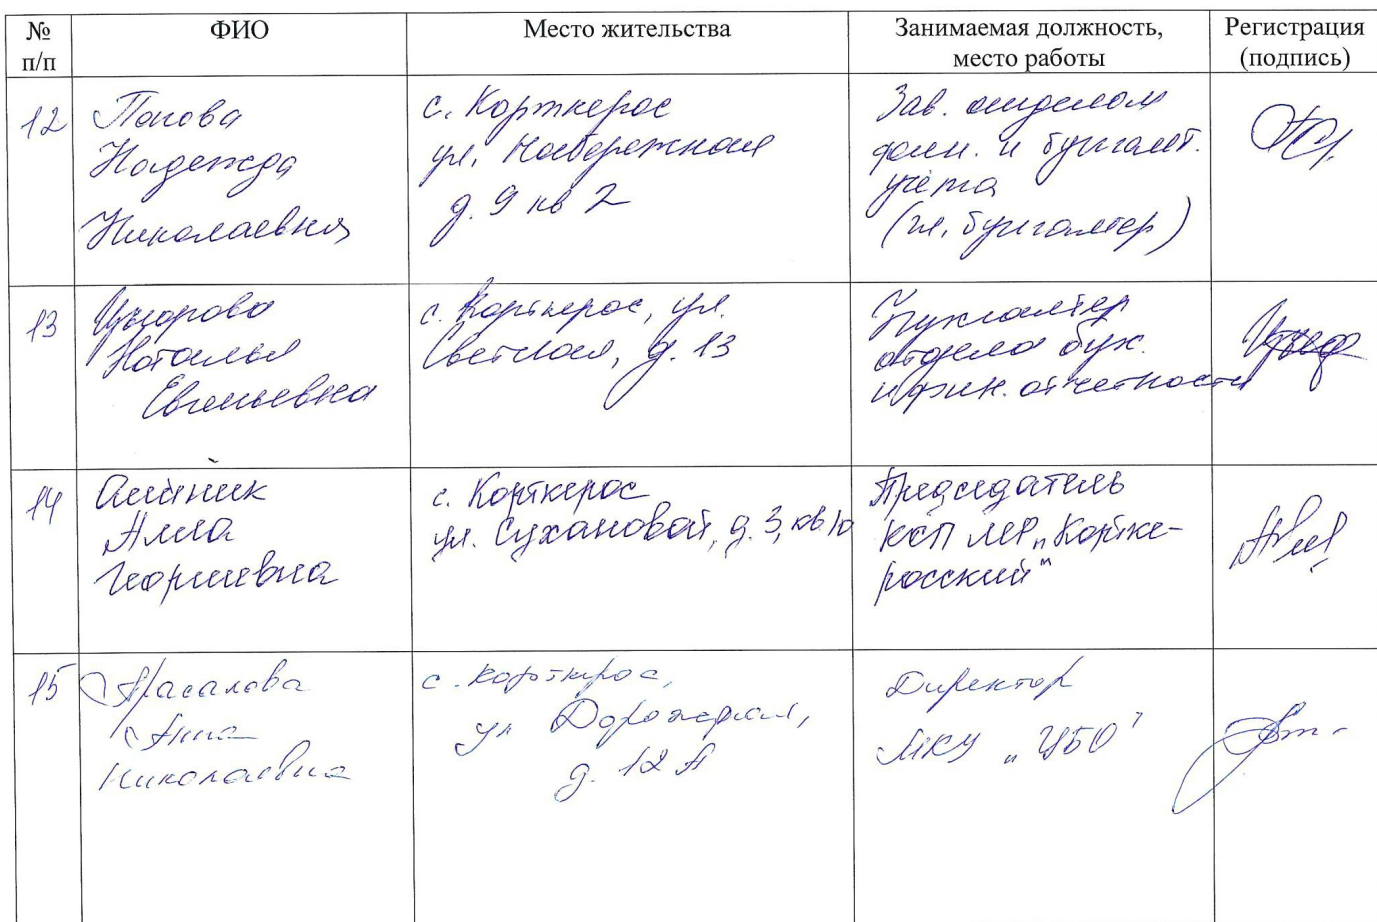 № п/п
ФИО
Место жительства
Занимаемая должность, место работы
Регистрация (подпись)
12
Попова
Надежда
Николаевна
с. Корткерос
ул. Набережная
д. 9 кв 2
Зав. отделом
фин. и бухгалт.
учёта
(гл. бухгалтер)
13
Наталья
Евгеньевна
с. Корткерос, ул.
Светлая, д. 13
Бухгалтер
отдела бух.
и фин. отчетности
14
Алйник
Алла
Георгиевна
с. Корткерос
ул. Сухановой, д. 3, кв. 10
Председатель
КСП МР „Кортке-
росский"
15
Анна
Николаевна
с. Корткерос,
ул Дорожная,
д. 12 А
Директор
МКУ „ЦБО"